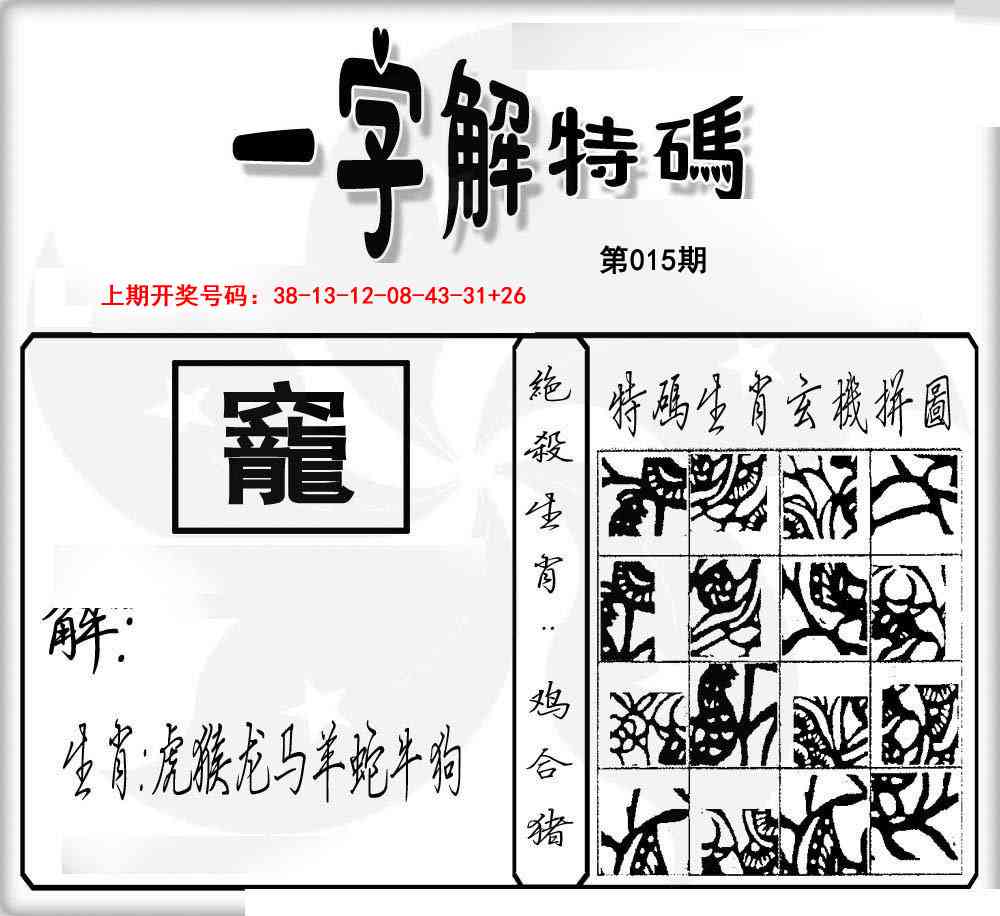 一字解特碼
第015期
上期开奖号码：38-13-12-08-43-31+26
竉
解:
生肖:虎猴龙马羊蛇牛狗
絶殺生肖:鸡合猪
特碼生肖玄機拼圖